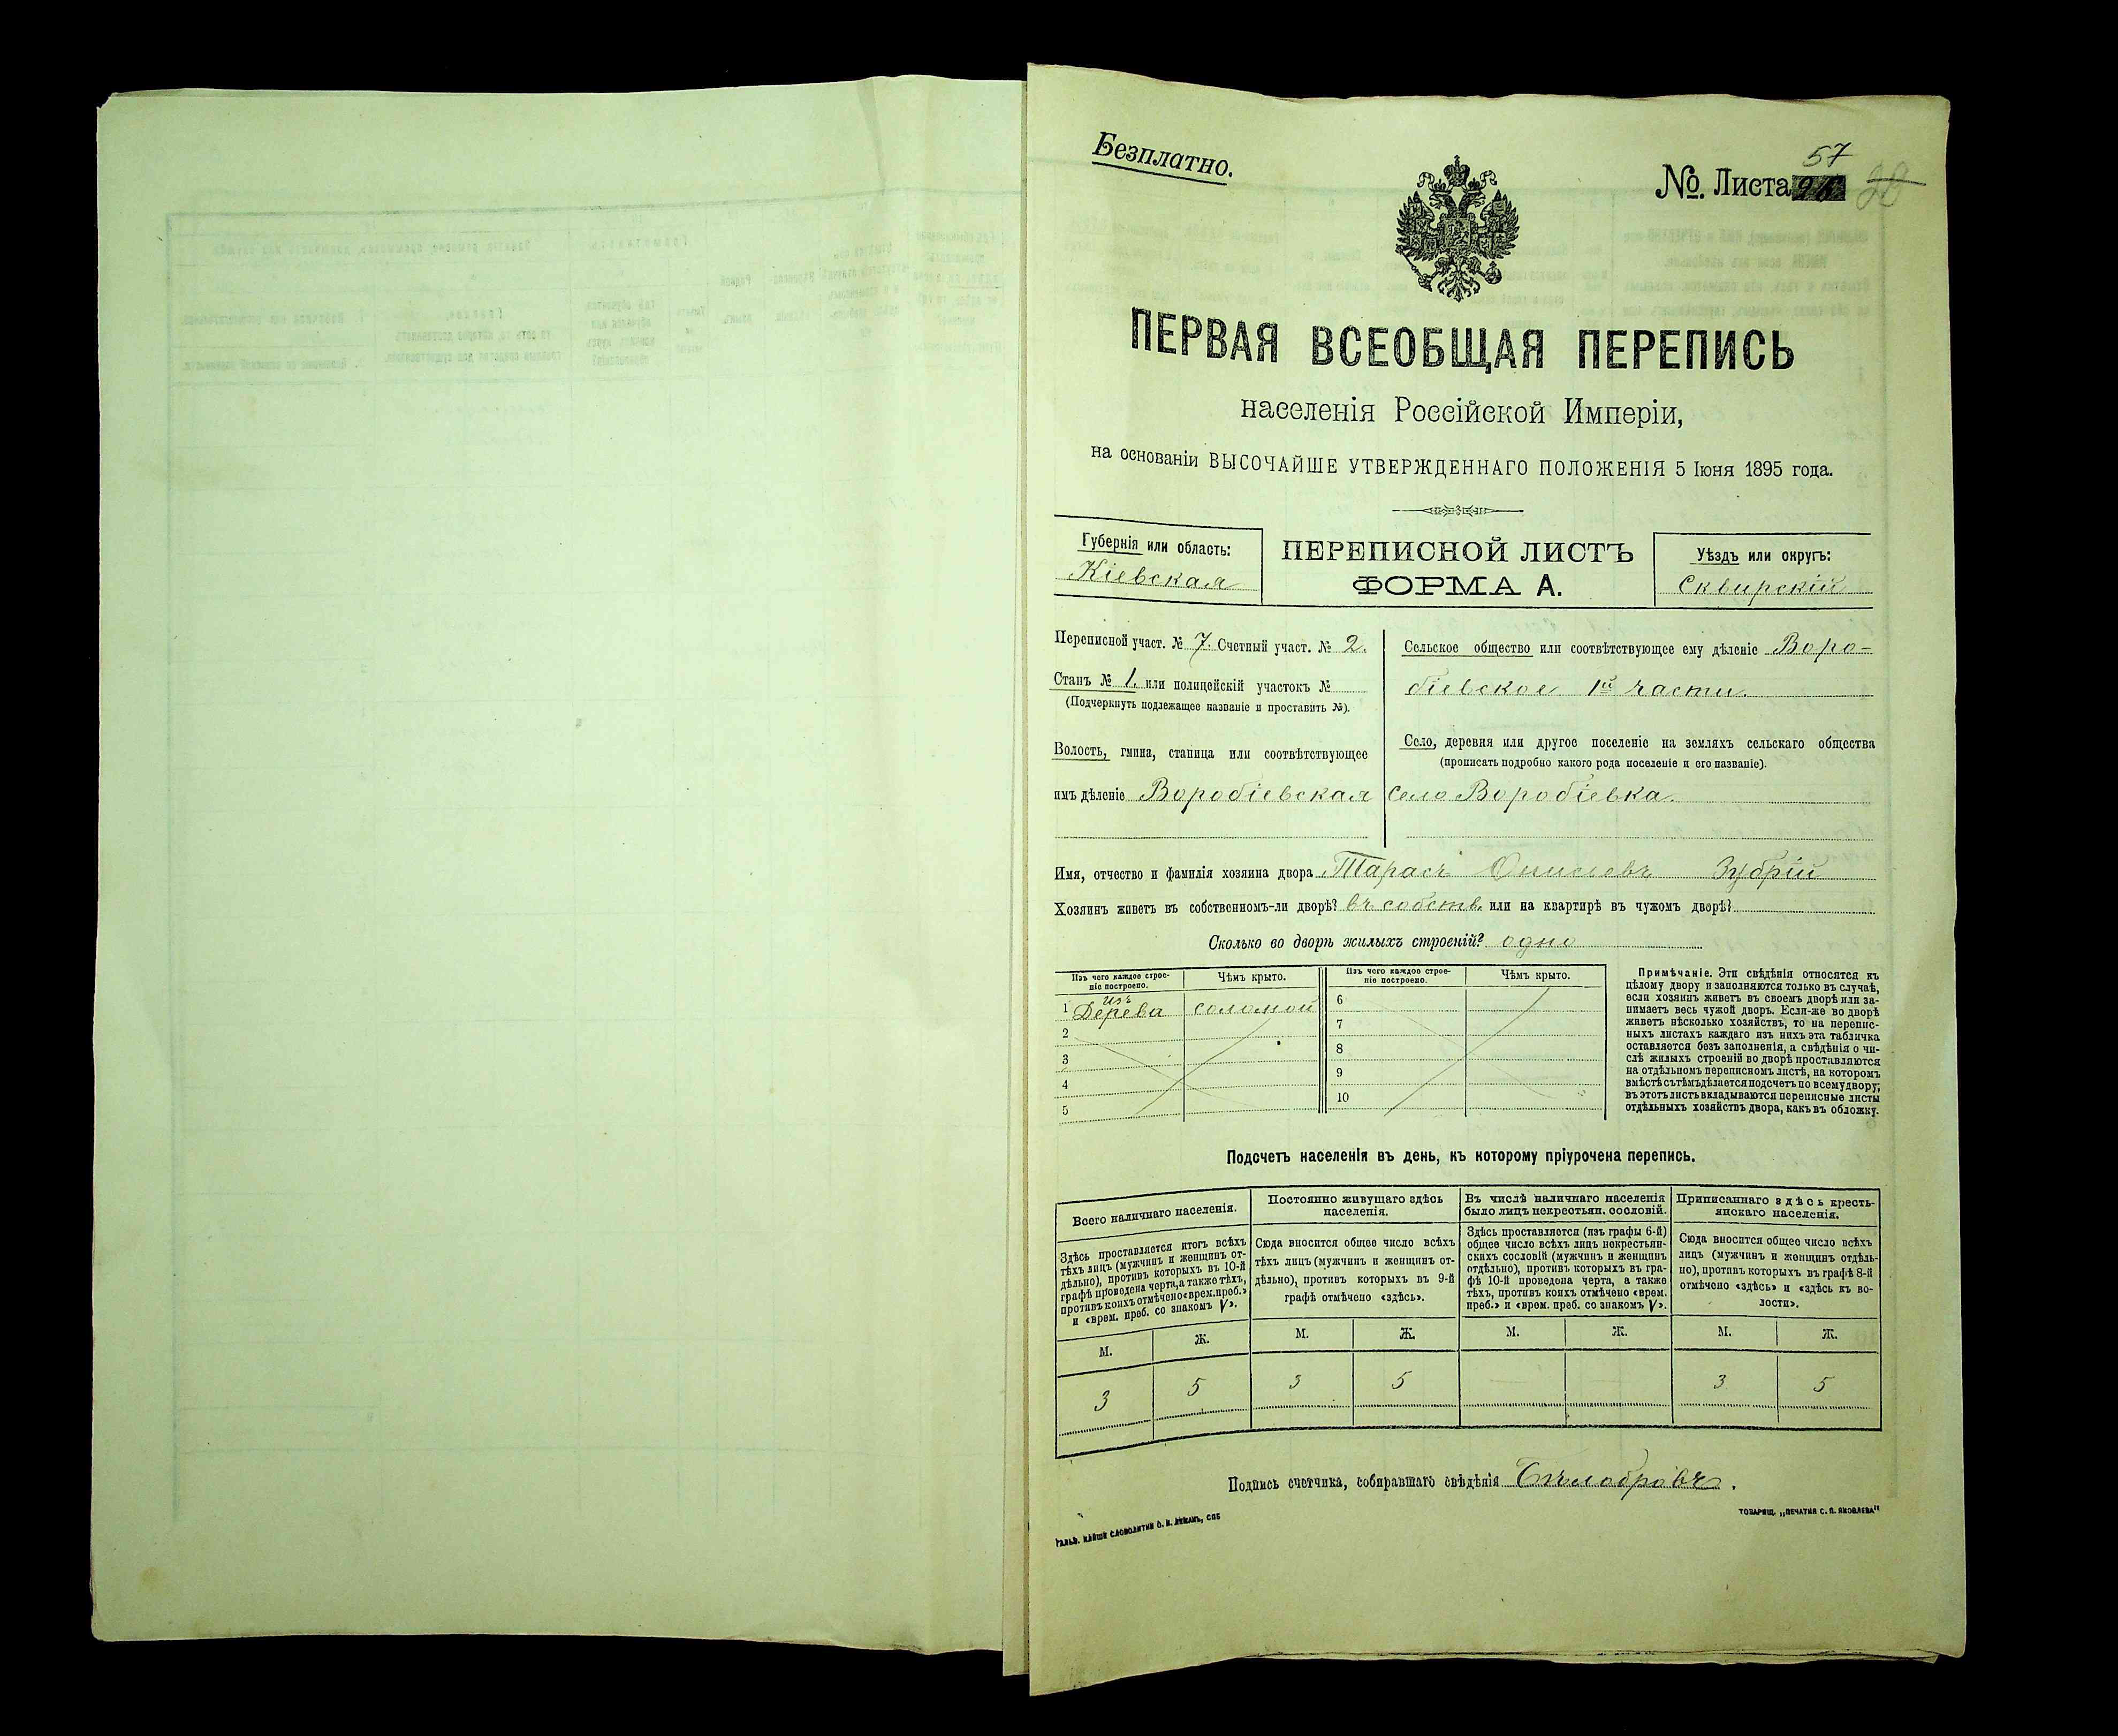 Безплатно.
57
№ Листа
ПЕРВАЯ ВСЕОБЩАЯ ПЕРЕПИСЬ
населенія Россійской Имперіи,
на основаніи ВЫСОЧАЙШЕ УТВЕРЖДЕННАГО ПОЛОЖЕНІЯ 5 Іюня 1895 года.
Губернія или область:
Кіевская
ПЕРЕПИСНОЙ ЛИСТЪ
ФОРМА А.
Уѣздъ или округъ:
Сквирскій
Переписной участ. № 7. Счетный участ. № 2.
Станъ № 1. или полицейскій участокъ №
(Подчеркнуть подлежащее названіе и проставить №).
Волость, гмина, станица или соотвѣтствующее
имъ дѣленіе Воробіевская
Сельское общество или соотвѣтствующее ему дѣленіе Воро-
біевское 1й части.
Село, деревня или другое поселеніе на земляхъ сельскаго общества
(прописать подробно какого рода поселеніе и его названіе).
село Воробіевка.
Имя, отчество и фамилія хозяина двора Тарасъ Онисіевъ Зубрій
Хозяинъ живетъ въ собственномъ-ли дворѣ? въ собств. или на квартирѣ въ чужомъ дворѣ?
Сколько во дворѣ жилыхъ строеній? одно
Изъ чего каждое строе-
ніе построено.
Чѣмъ крыто.
Изъ чего каждое строе-
ніе построено.
Чѣмъ крыто.
изъ
1 Дерева соломой
2
3
4
5
6
7
8
9
10
Примѣчаніе. Эти свѣдѣнія относятся къ
цѣлому двору и заполняются только въ случаѣ,
если хозяинъ живетъ въ своемъ дворѣ или за-
нимаетъ весь чужой дворъ. Если-же во дворѣ
живетъ нѣсколько хозяйствъ, то на перепис-
ныхъ листахъ каждаго изъ нихъ эта табличка
оставляется безъ заполненія, а свѣдѣнія о чи-
слѣ жилыхъ строеній во дворѣ проставляются
на отдѣльномъ переписномъ листѣ, на которомъ
вмѣстѣ съ тѣмъ дѣлается подсчетъ по всему двору;
въ этотъ листъ вкладываются переписные листы
отдѣльныхъ хозяйствъ двора, какъ въ обложку.
Подсчетъ населенія въ день, къ которому пріурочена перепись.
Всего наличнаго населенія.
Здѣсь проставляется итогъ всѣхъ
тѣхъ лицъ (мужчинъ и женщинъ от-
дѣльно), противъ которыхъ въ 10-й
графѣ проведена черта, а также тѣхъ,
противъ коихъ отмѣчено «врем. преб.»
и «врем. преб. со знакомъ V».
М. Ж.
3 5
Постоянно живущаго здѣсь
населенія.
Сюда вносится общее число всѣхъ
тѣхъ лицъ (мужчинъ и женщинъ от-
дѣльно), противъ которыхъ въ 9-й
графѣ отмѣчено «здѣсь».
М. Ж.
3 5
Въ числѣ наличнаго населенія
было лицъ некрестьян. сословій.
Здѣсь проставляется (изъ графы 6-й)
общее число всѣхъ лицъ некрестьян-
скихъ сословій (мужчинъ и женщинъ
отдѣльно), противъ которыхъ въ гра-
фѣ 10-й проведена черта, а также
тѣхъ, противъ коихъ отмѣчено «врем.
преб.» и «врем. преб. со знакомъ V».
М. Ж.
Приписаннаго здѣсь кресть-
янскаго населенія.
Сюда вносится общее число всѣхъ
лицъ (мужчинъ и женщинъ отдѣль-
но), противъ которыхъ въ графѣ 8-й
отмѣчено «здѣсь» и «здѣсь къ во-
лости».
М. Ж.
3 5
Подпись счетчика, собиравшаго свѣдѣнія Бѣлобровъ.
ТОВАРИЩ. „ПЕЧАТНЯ С. П. ЯКОВЛЕВА"